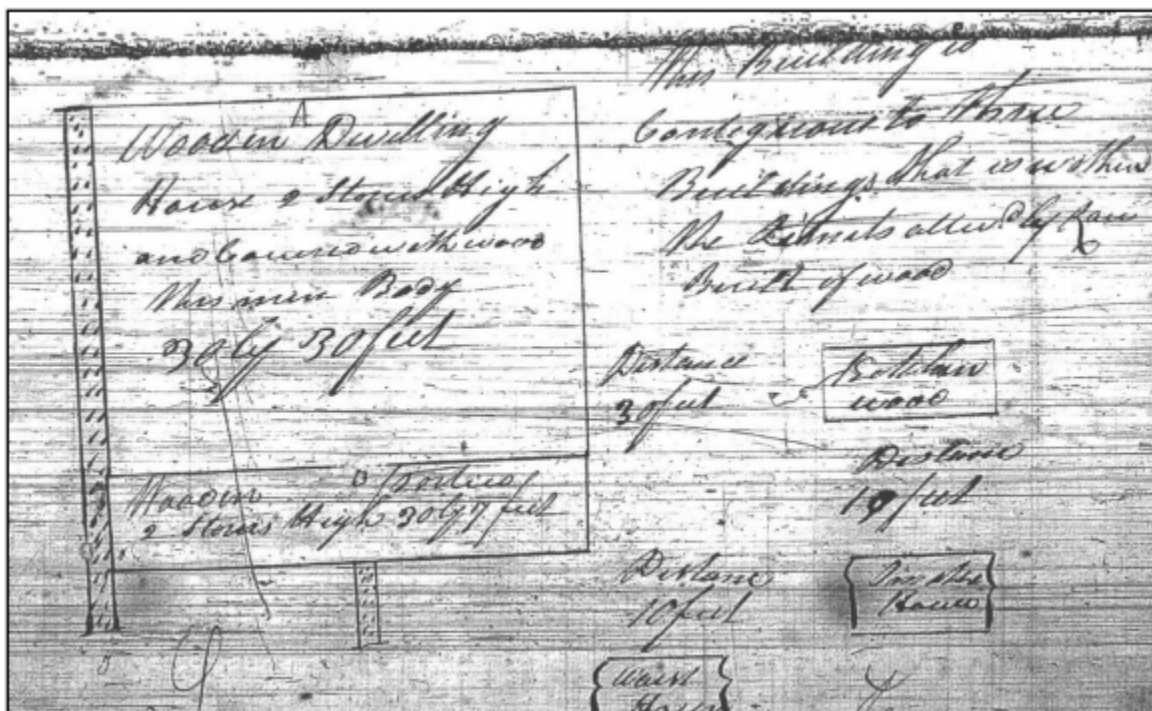 A
Wooden Dwelling
House 2 Stories High
and Covered with wood
this main Body
30 by 30 feet
Wooden Portico
2 Stories High 30 by 7 feet
This Building is
Contiguous to three
Buildings that is within
the Limits allowd by Law
Built of wood
Distance
30 feet
Kitchen
wood
Distance
feet
Distance
10 feet
Smoke
House
House